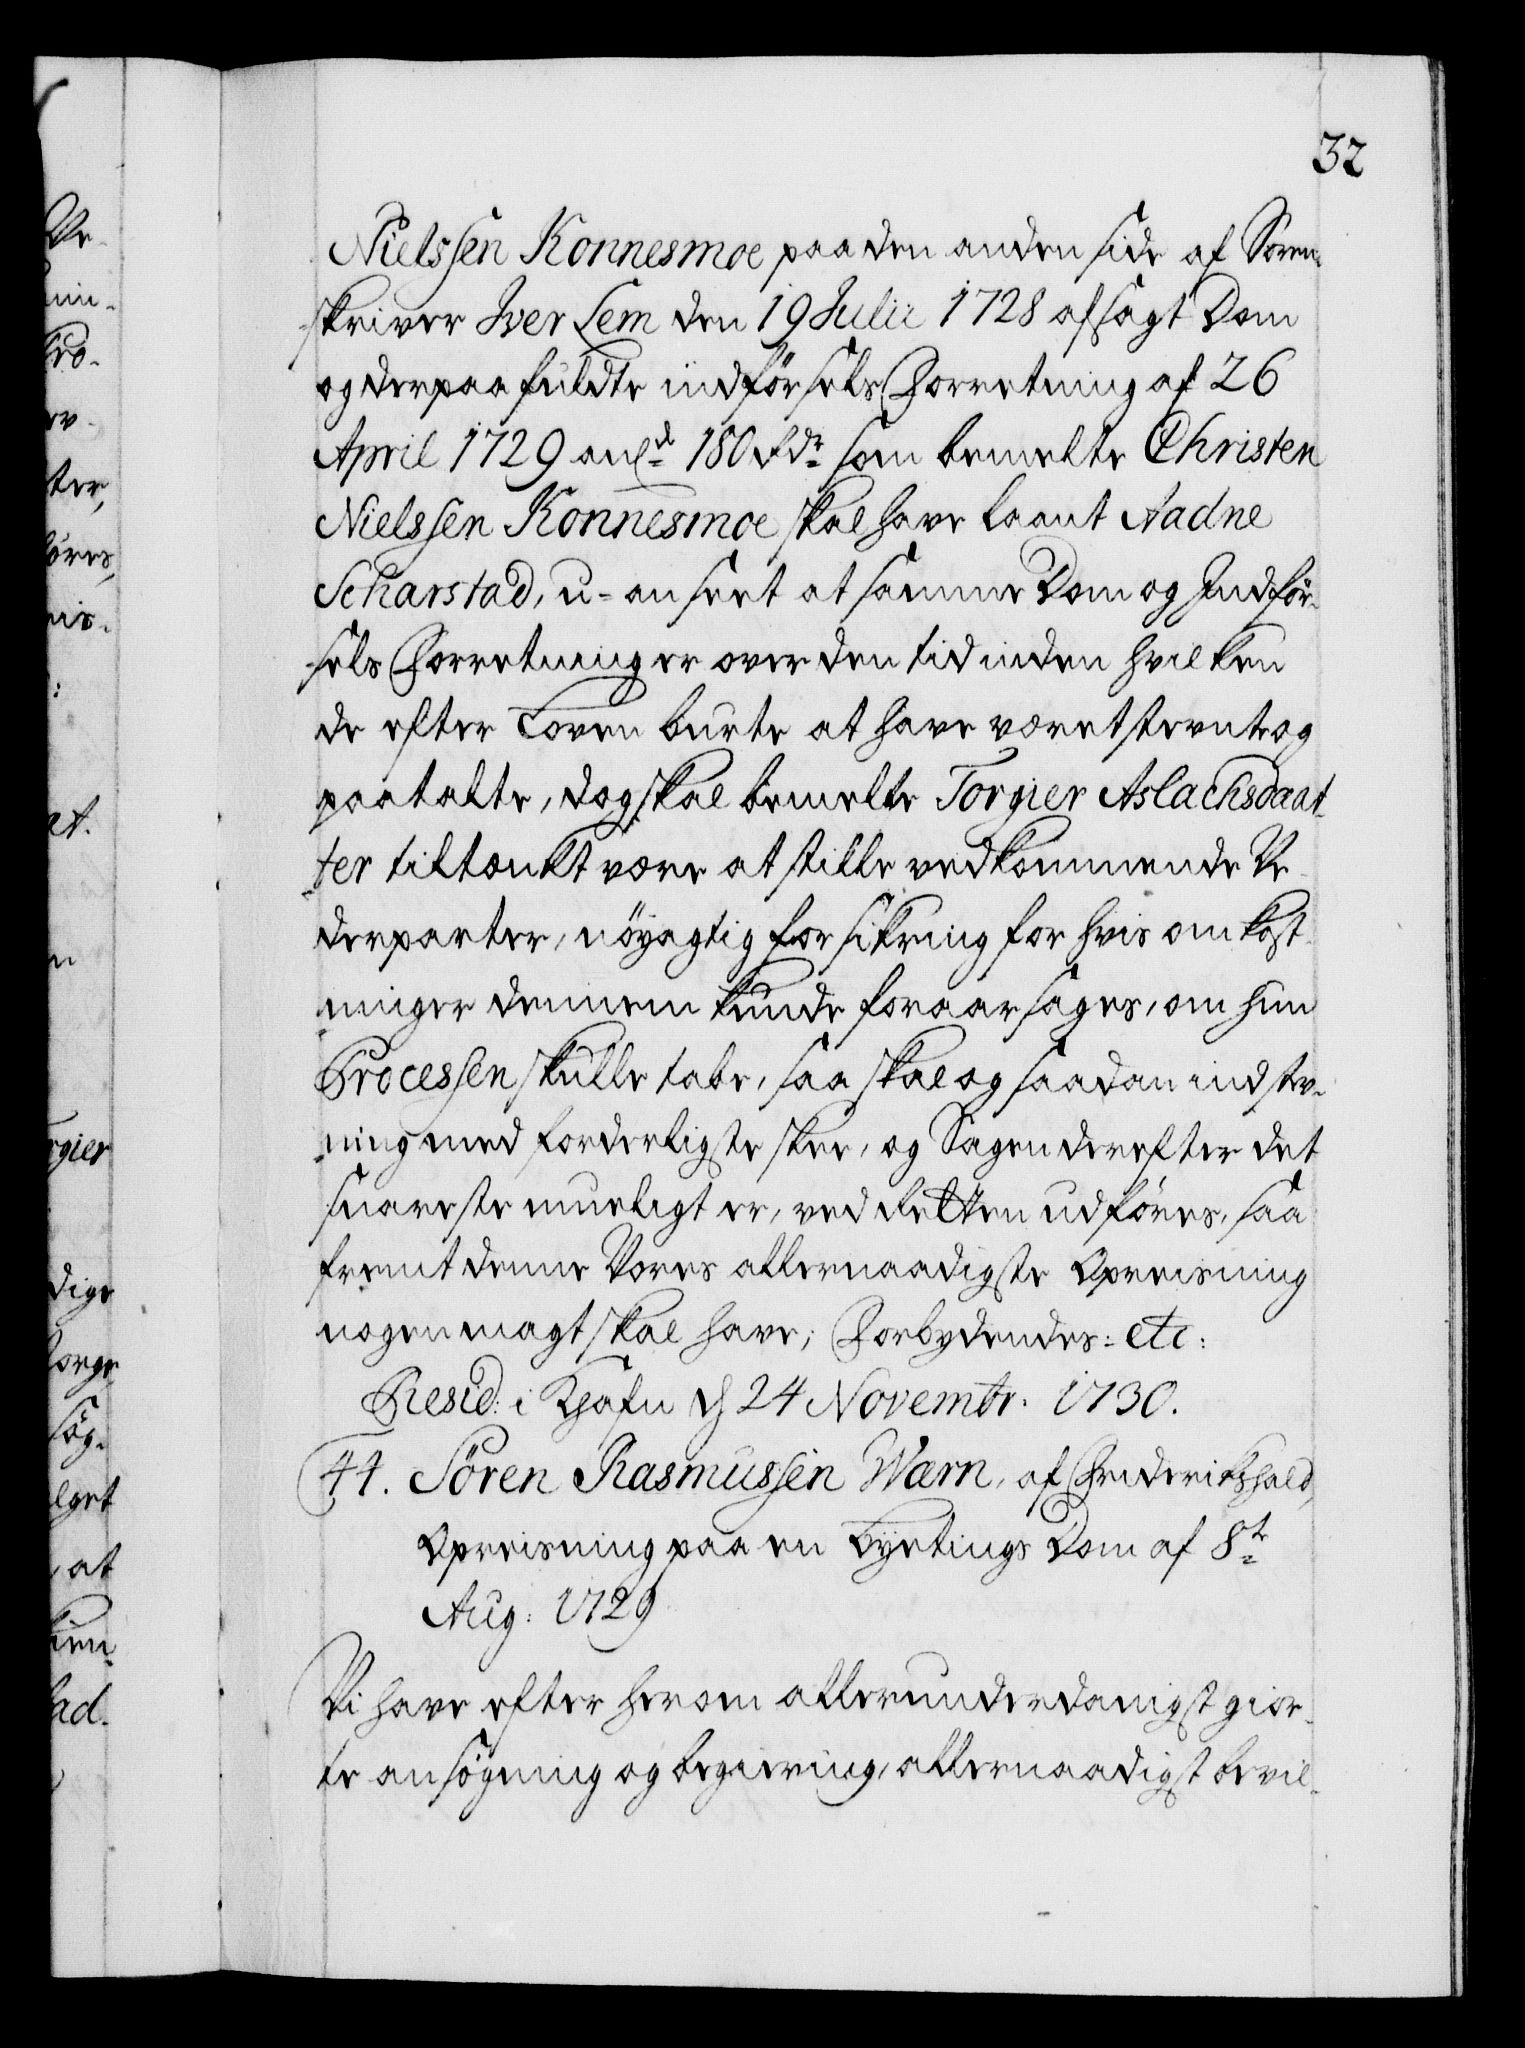 32
Nielssen Konnesmoe paa den anden side af Soren-
skriver Iver Lem den 19 Julii 1728 afsagt Dom
og derpaa fuldte indförsels Forretning af 26
April 1729 anl.d 180 Rdr som bemelte Christen
Nielssen Konnesmoe skal have laant Aadne
Scharstad, u-anseet at samme Dom og Indför-
sels Forretning er over den tid inden hvilken
de efter Loven burte at have været stevnte og
paatalte, dog skal bemelte Torgier Aslachsdaat-
ter tiltænkt være at stille vedkommende Ve-
derparter, nöyagtig forsikring for hvis omkost-
ninger dennem kunde foraarsages, om hun
Processen skulle tabe, saa skal og saadan indstev-
ning med forderligste skee, og Sagen derefter det
snareste mueligt er, ved Retten udföres, saa
fremt denne Vores allernaadigste Opreisning
nogen magt skal have; Forbydendes: etc:
Resid: i Khafn d 24 Novembr: 1730.
44. Sören Rasmussen Wærn, af Friderikshald,
Opreisning paa en Byetings Dom af 8te
Aug: 1729
Vi have efter herom allerunderdanigst gior-
te ansögning og begiering, allernaadigst bevil-
Ve-
ter,
öres,
nis-
:
et.
n
rgier
dige
Norge
sög-
lget
, at
ad.